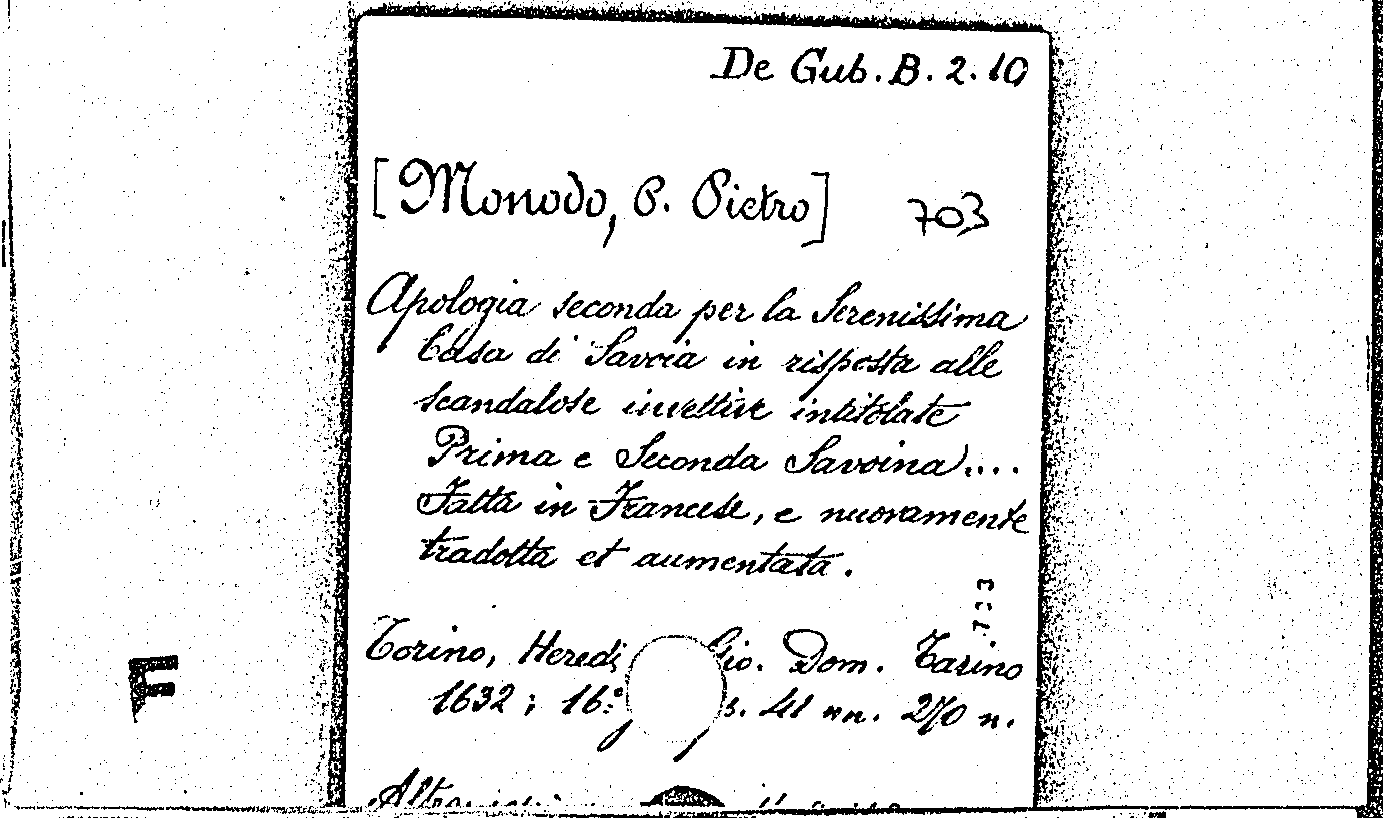 De Gub. B. 2. 10
[Monodo, P. Pietro]
703
Apologia seconda per la Serenissima
Casa di Savoia in risposta alle
scandalose invettive intitolate
Prima e Seconda Savoina)....
Fatta in Francese, e nuovamente
tradotta et aumentata.
Torino, Heredi Gio. Dom. Tarino
1632; 16:° 41 nn. 270 n.
F